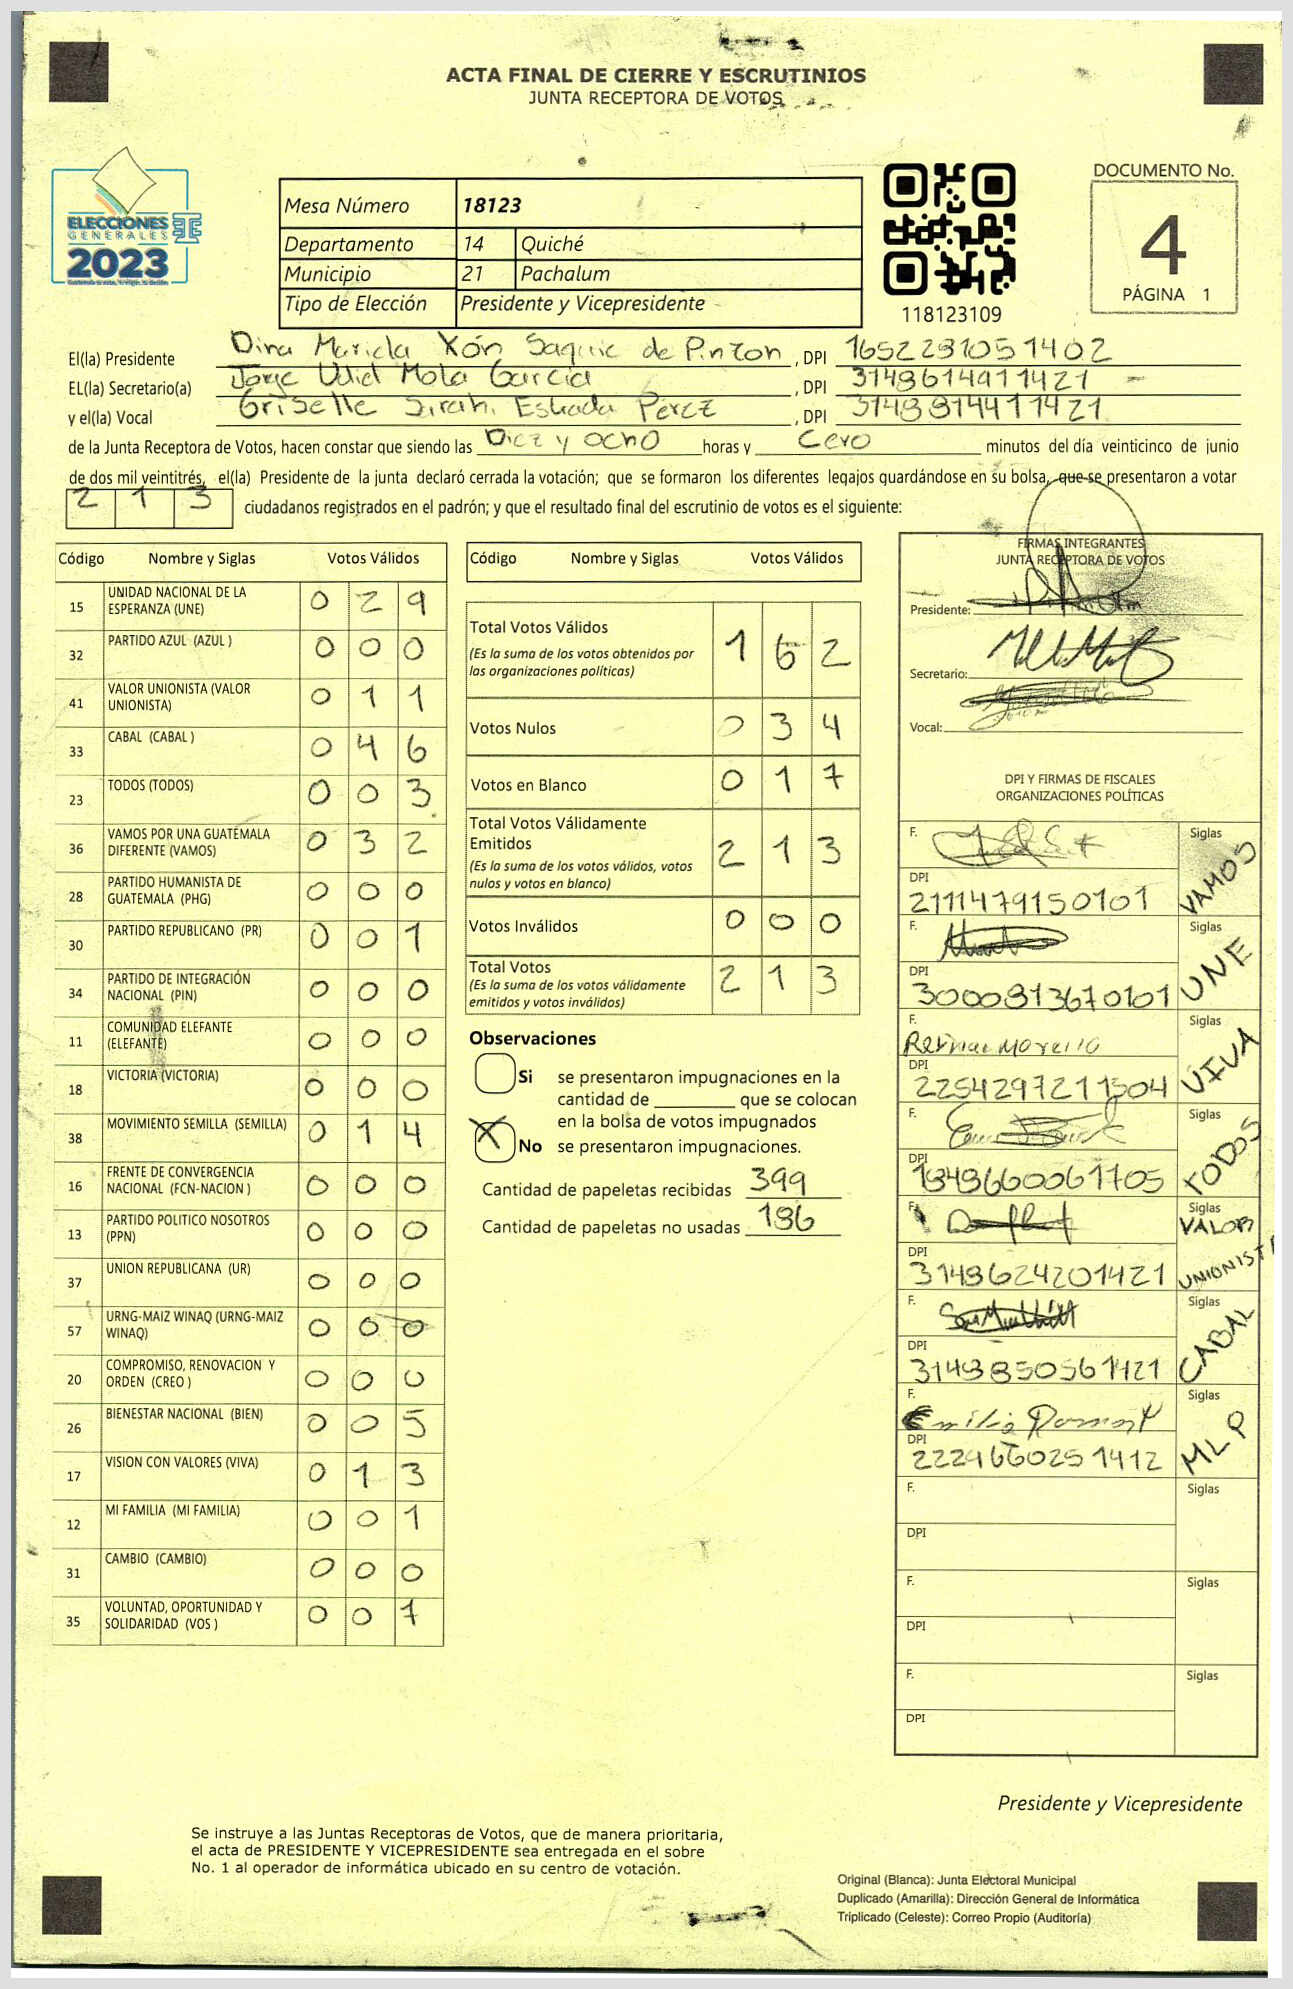 ACTA FINAL DE CIERRE Y ESCRUTINIOS
JUNTA RECEPTORA DE VOTOS
ELECCIONES
GENERALES
2023
Mesa Número 18123
Departamento 14 Quiché
Municipio 21 Pachalum
Tipo de Elección Presidente y Vicepresidente
118123109
DOCUMENTO No.
4
PÁGINA 1
El(la) Presidente Dina Mariela Xón Saquic de Pinzon, DPI 1652281051402
EL(la) Secretario(a) Jorge Udiel Mota García, DPI 3148614911421
y el(la) Vocal Griselle Sarahi Estrada Pérez, DPI 3148814411421
de la Junta Receptora de Votos, hacen constar que siendo las Diez y ocho horas y Cero minutos del día veinticinco de junio
de dos mil veintitrés, el(la) Presidente de la junta declaró cerrada la votación; que se formaron los diferentes legajos guardándose en su bolsa, que se presentaron a votar
213 ciudadanos registrados en el padrón; y que el resultado final del escrutinio de votos es el siguiente:
Código Nombre y Siglas Votos Válidos
15 UNIDAD NACIONAL DE LA ESPERANZA (UNE) 0 2 9
32 PARTIDO AZUL (AZUL ) 0 0 0
41 VALOR UNIONISTA (VALOR UNIONISTA) 0 1 1
33 CABAL (CABAL ) 0 4 6
23 TODOS (TODOS) 0 0 3
36 VAMOS POR UNA GUATEMALA DIFERENTE (VAMOS) 0 3 2
28 PARTIDO HUMANISTA DE GUATEMALA (PHG) 0 0 0
30 PARTIDO REPUBLICANO (PR) 0 0 1
34 PARTIDO DE INTEGRACIÓN NACIONAL (PIN) 0 0 0
11 COMUNIDAD ELEFANTE (ELEFANTE) 0 0 0
18 VICTORIA (VICTORIA) 0 0 0
38 MOVIMIENTO SEMILLA (SEMILLA) 0 1 4
16 FRENTE DE CONVERGENCIA NACIONAL (FCN-NACION ) 0 0 0
13 PARTIDO POLITICO NOSOTROS (PPN) 0 0 0
37 UNION REPUBLICANA (UR) 0 0 0
57 URNG-MAIZ WINAQ (URNG-MAIZ WINAQ) 0 0 0
20 COMPROMISO, RENOVACION Y ORDEN (CREO ) 0 0 0
26 BIENESTAR NACIONAL (BIEN) 0 0 5
17 VISION CON VALORES (VIVA) 0 1 3
12 MI FAMILIA (MI FAMILIA) 0 0 1
31 CAMBIO (CAMBIO) 0 0 0
35 VOLUNTAD, OPORTUNIDAD Y SOLIDARIDAD (VOS ) 0 0 7
Código Nombre y Siglas Votos Válidos
Total Votos Válidos 1 6 2
(Es la suma de los votos obtenidos por
las organizaciones políticas)
Votos Nulos 0 3 4
Votos en Blanco 0 1 7
Total Votos Válidamente
Emitidos 2 1 3
(Es la suma de los votos válidos, votos
nulos y votos en blanco)
Votos Inválidos 0 0 0
Total Votos 2 1 3
(Es la suma de los votos válidamente
emitidos y votos inválidos)
Observaciones
Si se presentaron impugnaciones en la
cantidad de ________ que se colocan
en la bolsa de votos impugnados
X No se presentaron impugnaciones.
Cantidad de papeletas recibidas 399
Cantidad de papeletas no usadas 186
FIRMAS INTEGRANTES
JUNTA RECEPTORA DE VOTOS
Presidente:
Secretario:
Vocal:
DPI Y FIRMAS DE FISCALES
ORGANIZACIONES POLÍTICAS
F. Siglas VAMOS
DPI 2111479150101
F. Siglas UNE
DPI 3000813670101
F. Siglas VIVA
DPI 2254297211504
F. Siglas TODOS
DPI 1848660061705
F. Siglas VALOR UNIONISTA
DPI 3148624201421
F. Siglas CABAL
DPI 3148850561421
F. Emilio Siglas MLP
DPI 2224660251412
F. Siglas
DPI
F. Siglas
DPI
F. Siglas
DPI
Presidente y Vicepresidente
Se instruye a las Juntas Receptoras de Votos, que de manera prioritaria,
el acta de PRESIDENTE Y VICEPRESIDENTE sea entregada en el sobre
No. 1 al operador de informática ubicado en su centro de votación.
Original (Blanca): Junta Electoral Municipal
Duplicado (Amarilla): Dirección General de Informática
Triplicado (Celeste): Correo Propio (Auditoría)